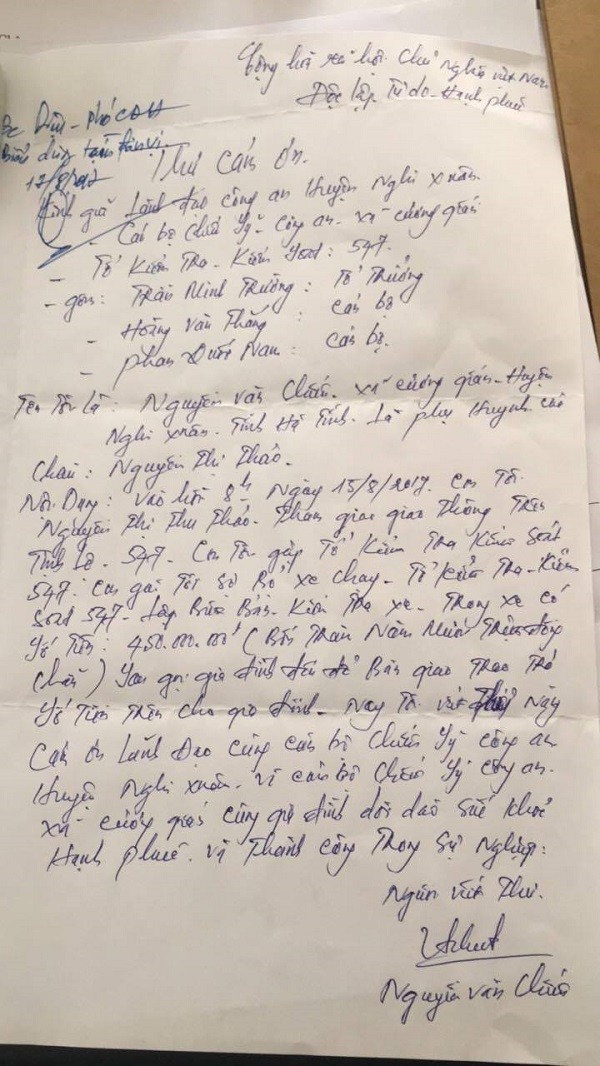 Cộng hòa xã hội chủ Nghĩa việt Nam
Độc lập Tự do - Hạnh phúc
12/8/2017
Thư cảm ơn.
Kính gửi Lãnh đạo công an Huyện Nghi Xuân
- Cán bộ chiến sỹ - công an - xã cương gián
- Tổ Kiểm Tra - Kiểm soát: 547.
- gồm: Trần Minh Trường: Tổ Trưởng
- Hoàng văn Thắng: cán bộ
- phan Quốc Nam: cán bộ.
Tên Tôi là: Nguyễn văn Chiến. xã cương gián - Huyện
Nghi xuân. Tỉnh Hà Tĩnh. Là phụ Huynh của
Cháu: Nguyễn Thị Thảo.
Nội Dung: vào hồi 8h Ngày 15/8/2017. Con Tôi
Nguyễn Thị Thu Thảo. Tham gia giao thông Trên
Tỉnh Lộ. 547. Con Tôi gặp Tổ Kiểm Tra Kiểm Soát
547. Con gái Tôi sợ Bỏ xe chạy - Tổ kiểm Tra - Kiểm
Soát 547 - Lập Biên Bản - Kiểm Tra xe - Trong xe có
số Tiền: 450.000.000đ (Bốn Trăm Năm Mươi Triệu đồng
chẵn) Sau gọi gia đình đến để Bàn giao Trao Trả
số Tiền Trên cho gia đình - Nay Tôi viết Thư Này
Cảm ơn Lãnh Đạo cùng cán bộ chiến sỹ công an
Huyện Nghi xuân. và cán bộ chiến sỹ công an.
xã cương gián cùng gia đình dồi dào sức khoẻ
Hạnh phúc. và Thành công Trong sự Nghiệp.
Người viết Thư.
Nguyễn văn Chiến